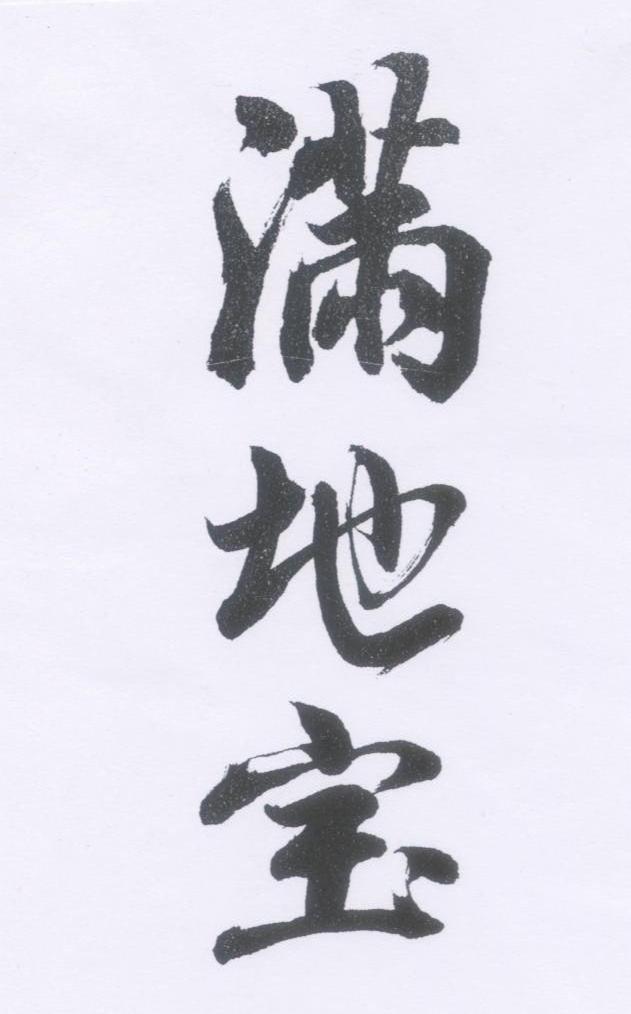 满地宝